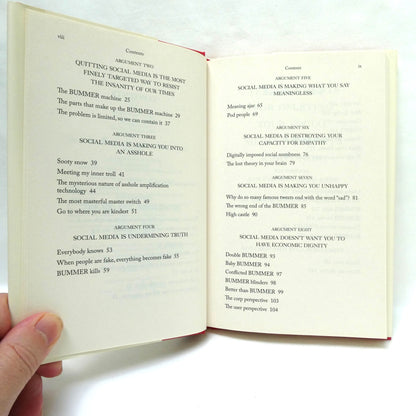 viii
Contents
ARGUMENT TWO
QUITTING SOCIAL MEDIA IS THE MOST
FINELY TARGETED WAY TO RESIST
THE INSANITY OF OUR TIMES
The BUMMER machine 25
The parts that make up the BUMMER machine 29
The problem is limited, so we can contain it 37
ARGUMENT THREE
SOCIAL MEDIA IS MAKING YOU INTO
AN ASSHOLE
Sooty snow 39
Meeting my inner troll 41
The mysterious nature of asshole amplification
technology 44
The most masterful master switch 49
Go to where you are kindest 51
ARGUMENT FOUR
SOCIAL MEDIA IS UNDERMINING TRUTH
Everybody knows 53
When people are fake, everything becomes fake 55
BUMMER kills 59
Contents
ix
ARGUMENT FIVE
SOCIAL MEDIA IS MAKING WHAT YOU SAY
MEANINGLESS
Meaning ajar 65
Pod people 69
ARGUMENT SIX
SOCIAL MEDIA IS DESTROYING YOUR
CAPACITY FOR EMPATHY
Digitally imposed social numbness 76
The lost theory in your brain 79
ARGUMENT SEVEN
SOCIAL MEDIA IS MAKING YOU UNHAPPY
Why do so many famous tweets end with the word "sad"? 81
The wrong end of the BUMMER 85
High castle 90
ARGUMENT EIGHT
SOCIAL MEDIA DOESN'T WANT YOU TO
HAVE ECONOMIC DIGNITY
Double BUMMER 93
Baby BUMMER 94
Conflicted BUMMER 97
BUMMER blinders 98
Better than BUMMER 99
The corp perspective 103
The user perspective 104